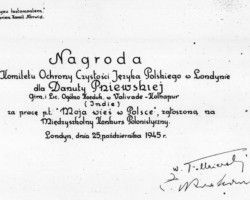 Nagroda
Komitetu Ochrony Czystości Języka Polskiego w Londynie
dla Danuty Pniewskiej
Gim. i Lic. Ogóln
w Valivade - Kolhapur
(Indie)
za pracę p.t. "Moja wieś w Polsce", zgłoszoną na
Międzyszkolny Konkurs Polonistyczny.
Londyn, dnia 25. października 1945 r.